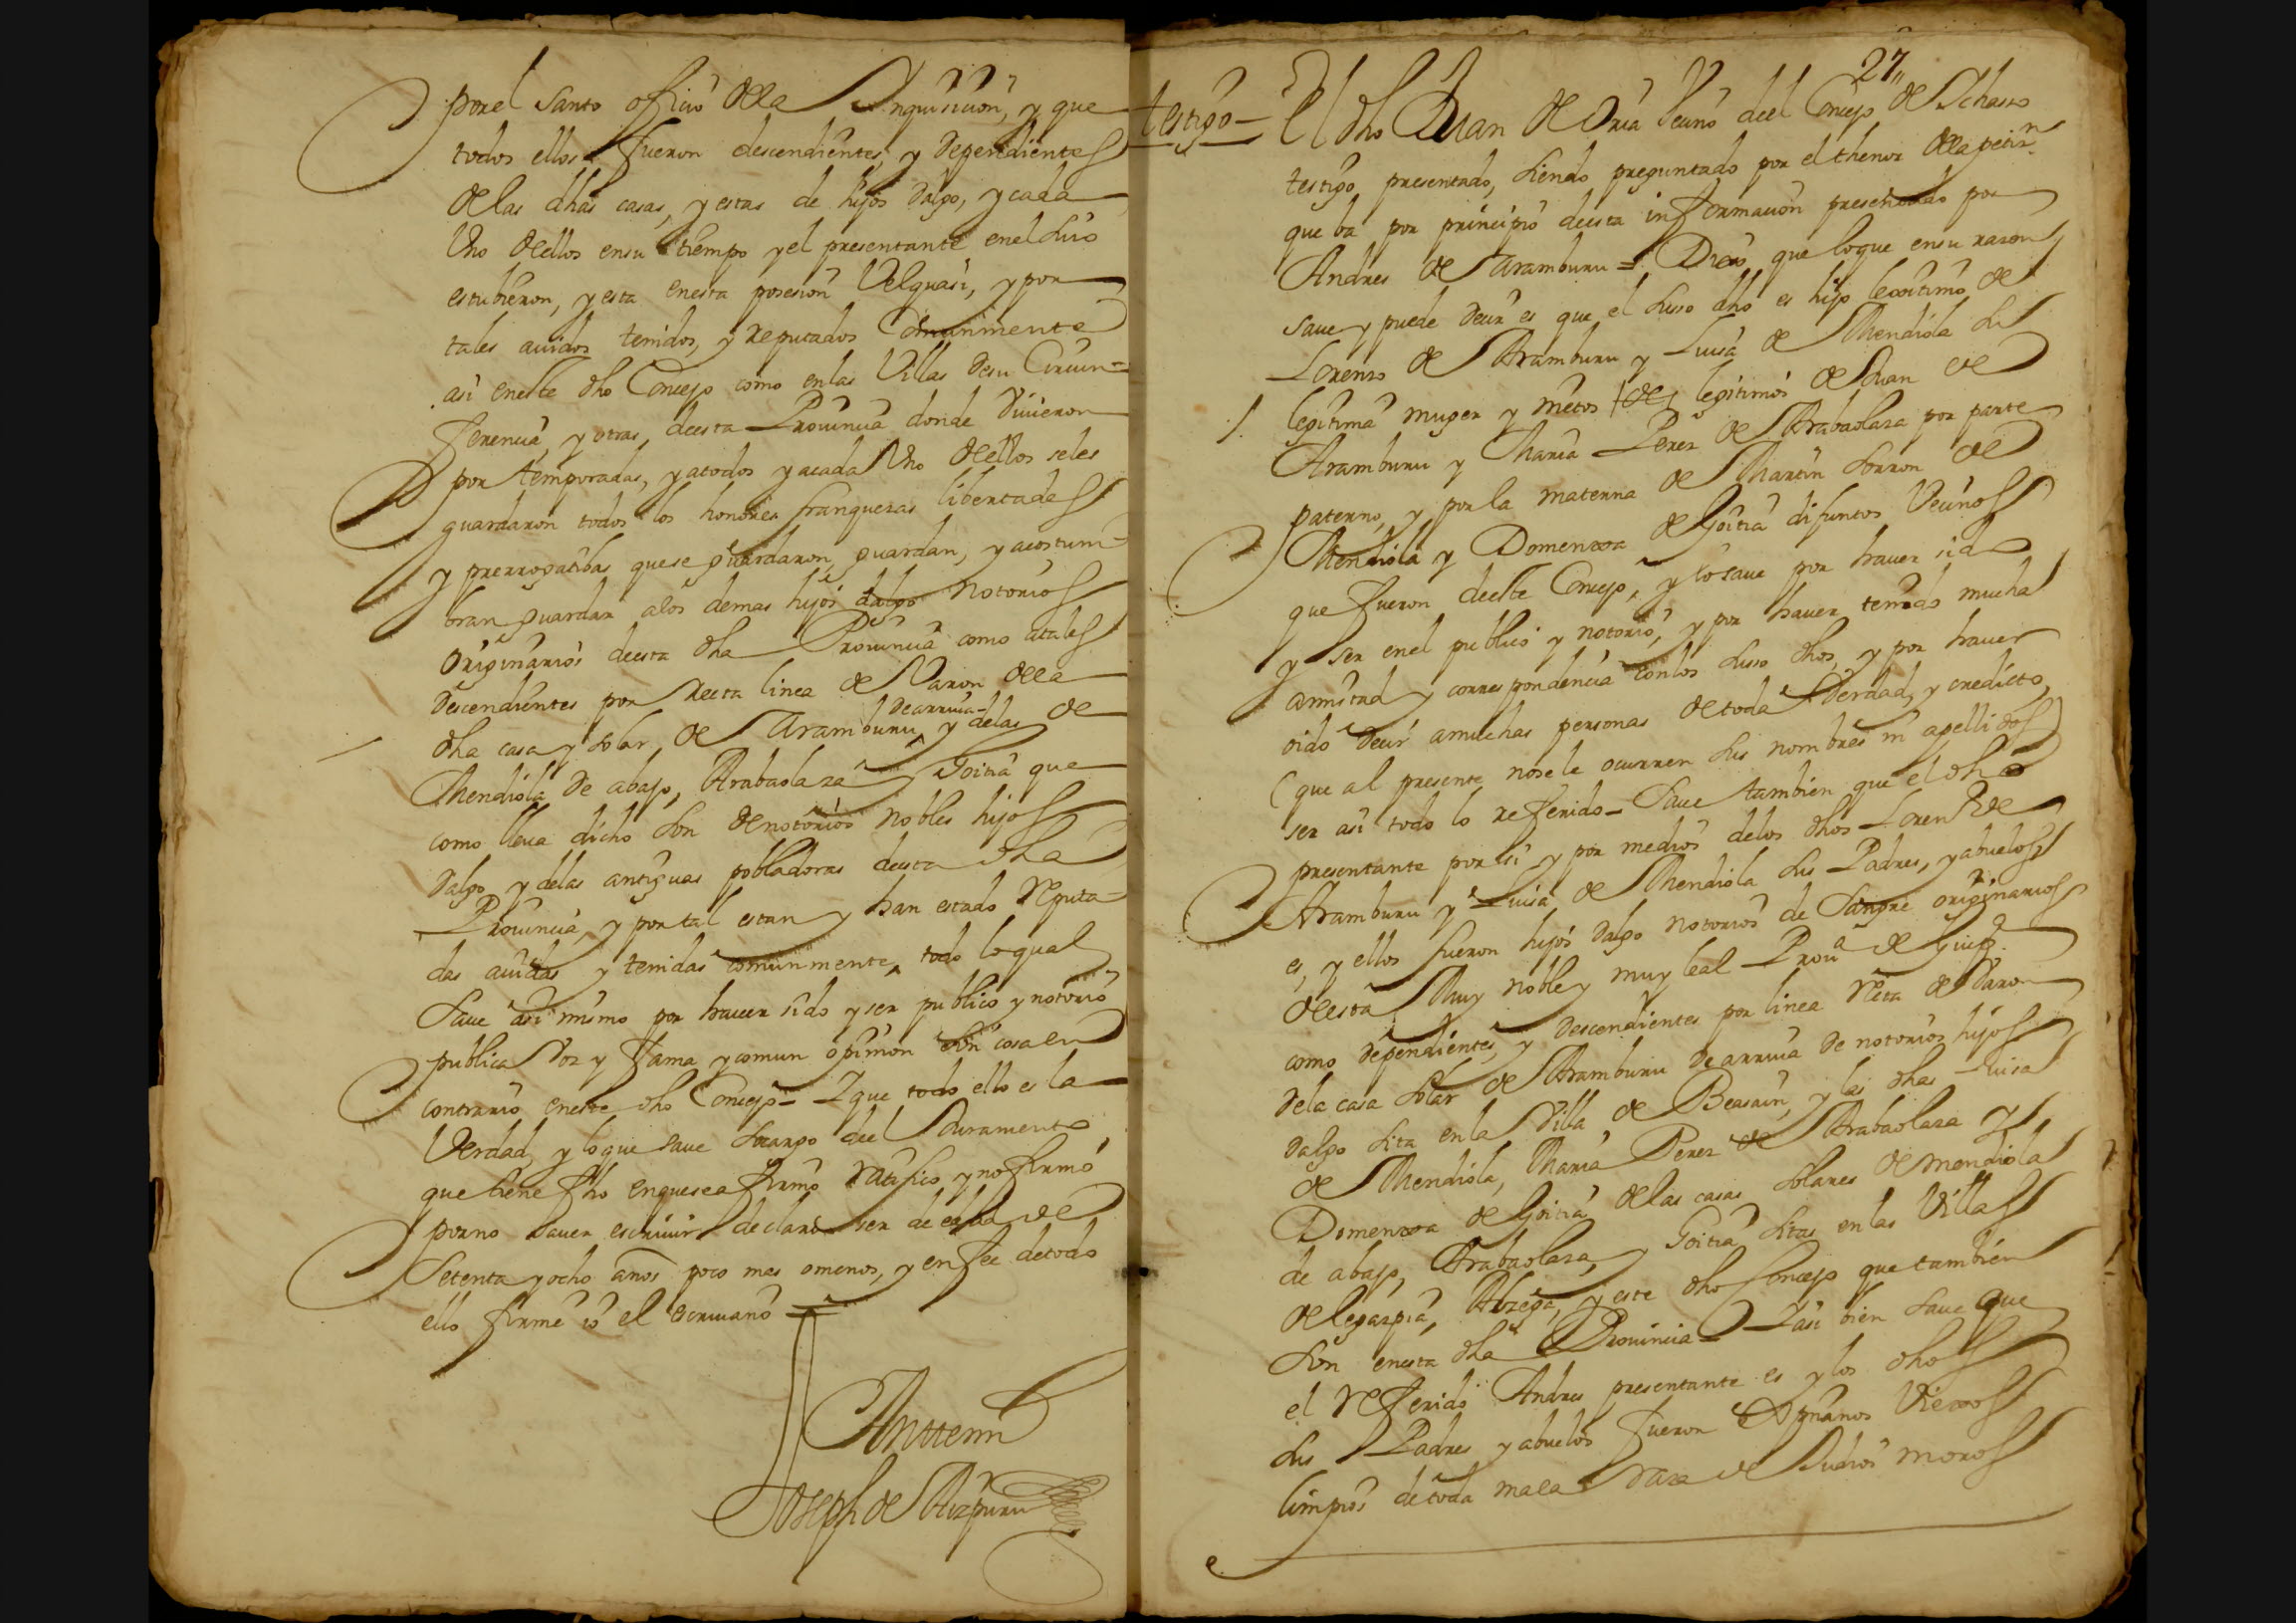 por el santo oficio della Inquisicion, y que
todos ellos fueron descendientes, y dependientes
de las dhas casas, y estas de hijos dalgo, y cada
Uno dellos en su tiempo y el presentante en el suio
estubieron, y esta en esta posesion Vel quasi, y por
tales auidos tenidos, y reputados Comunmente
asi en este dho Concejo como en las Villas de su Circun=
ferencia, y otras, deesta Prouincia donde Viuieron
por temporadas, y a todos y a cada Uno dellos seles
guardaron todos los honores franquezas libertades
y prerrogatibas que se guardaron, guardan, y acostum=
bran guardar a los demas hijos dalgo notorios
originarios deesta dha Prouincia como a tales
descendientes por recta linea de Varon della
dha casa y solar de Aramburu de arriua y delas de
Mendiola de abajo, Arabaolaza y Goitia que
como lleua dicho son de notorios nobles hijos
dalgo y delas antiguas pobladoras deesta dha
Prouincia, y por tal estan y han estado Reputa=
das auidas y tenidas comunmente, todo lo qual
saue asi mismo por hauer sido y ser publico y notorio
publica Voz y fama y comun opinion sin cosa en
contrario en este dho Concejo = Y que todo ello es la
Verdad, y lo que saue so cargo del Juramento
que tiene fho en que se afirmó ratifico, y no firmó
por no sauer escriuir declaro ser de edad de
setenta y ocho años poco mas o menos, y en fee de todo
ello firmé io el escriuano =
Anttemi
Joseph de Aizpuru
27
testigo = El dho Juan de Oria Vecino del Concejo de Ichaso
testigo, presentado, siendo preguntado por el thenor della peticn
que ba por principio deesta informacion presentado por
Andres de Aramburu = Dixo que lo que en su razon
saue y puede decir es que el suso dho es hijo lexitimo de
Lorenzo de Aramburu y Luisa de Mendiola su
legitima muger y nietos legitimos de Juan de
Aramburu y Maria Perez de Arabaolaza por parte
paterno, y por la materna de Martin Sorron de
Mendiola y Domenxa de Goitia difuntos Vecinos
que fueron deeste Concejo, y lo saue por hauer sido
y ser en el publico y notorio, y por hauer tenido mucha
amistad y correspondencia con los suso dhos, y por hauer
oido decir a muchas personas de toda Verdad, y credicto,
(que al presente no se le ocurren sus nombres ni apellidos)
ser asi todo lo referido = saue tambien que el dho
presentante por si y por medios delos dhos Lorenzo de
Aramburu y Luisa de Mendiola sus Padres, y abuelos,
es, y ellos fueron hijos dalgo notorios de Sangre originarios
deesta Muy noble y muy leal Proua de Guipza
como dependientes, y descendientes por linea Recta de Varon
dela casa solar de Aramburu de arriua de notorios hijos
dalgo sita en la Villa de Beasain, y las dhas Luisa
de Mendiola, Maria Perez de Arabaolaza y
Domenxa de Goitia de las casas solares de mendiola
de abajo, Arabaolaza, y Goitia sitas en las Villas
de legazpia, Alzega, y este dho Concejo que tambien
son en esta dha Prouincia = Y asi bien saue que
el Referido Andres presentante es y los dhos
sus Padres y abuelos fueron Xpnanos Viexos
limpios de toda mala raza de Judios moros